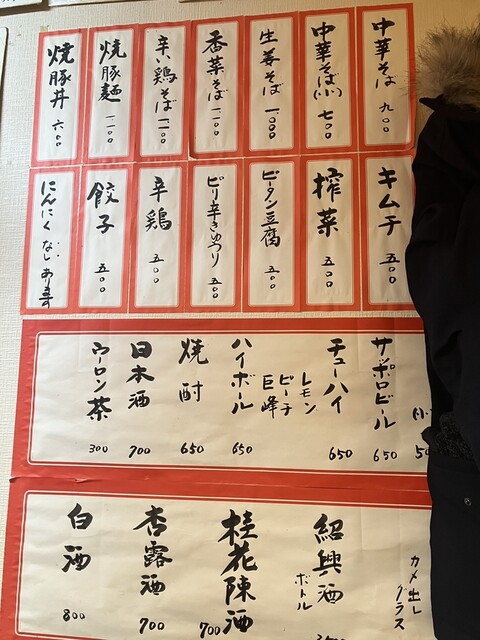 中華そば 九〇〇
中華そば(小) 七〇〇
生姜そば 一〇〇〇
香菜そば 一二〇〇
辛い鶏そば 一二〇〇
焼豚麺 一二〇〇
焼豚丼 六〇〇
キムチ 五〇〇
搾菜 五〇〇
ピータン豆腐 五〇〇
ピリ辛きゅうり 五〇〇
辛鶏 五〇〇
餃子 五〇〇
にんにくなしあります
(小)
サッポロビール 650
チューハイ 650
レモン
ピーチ
巨峰
ハイボール 650
焼酎 650
日本酒 700
ウーロン茶 300
カメ出し
グラス
紹興酒
ボトル
桂花陳酒 700
杏露酒 700
白酒 800